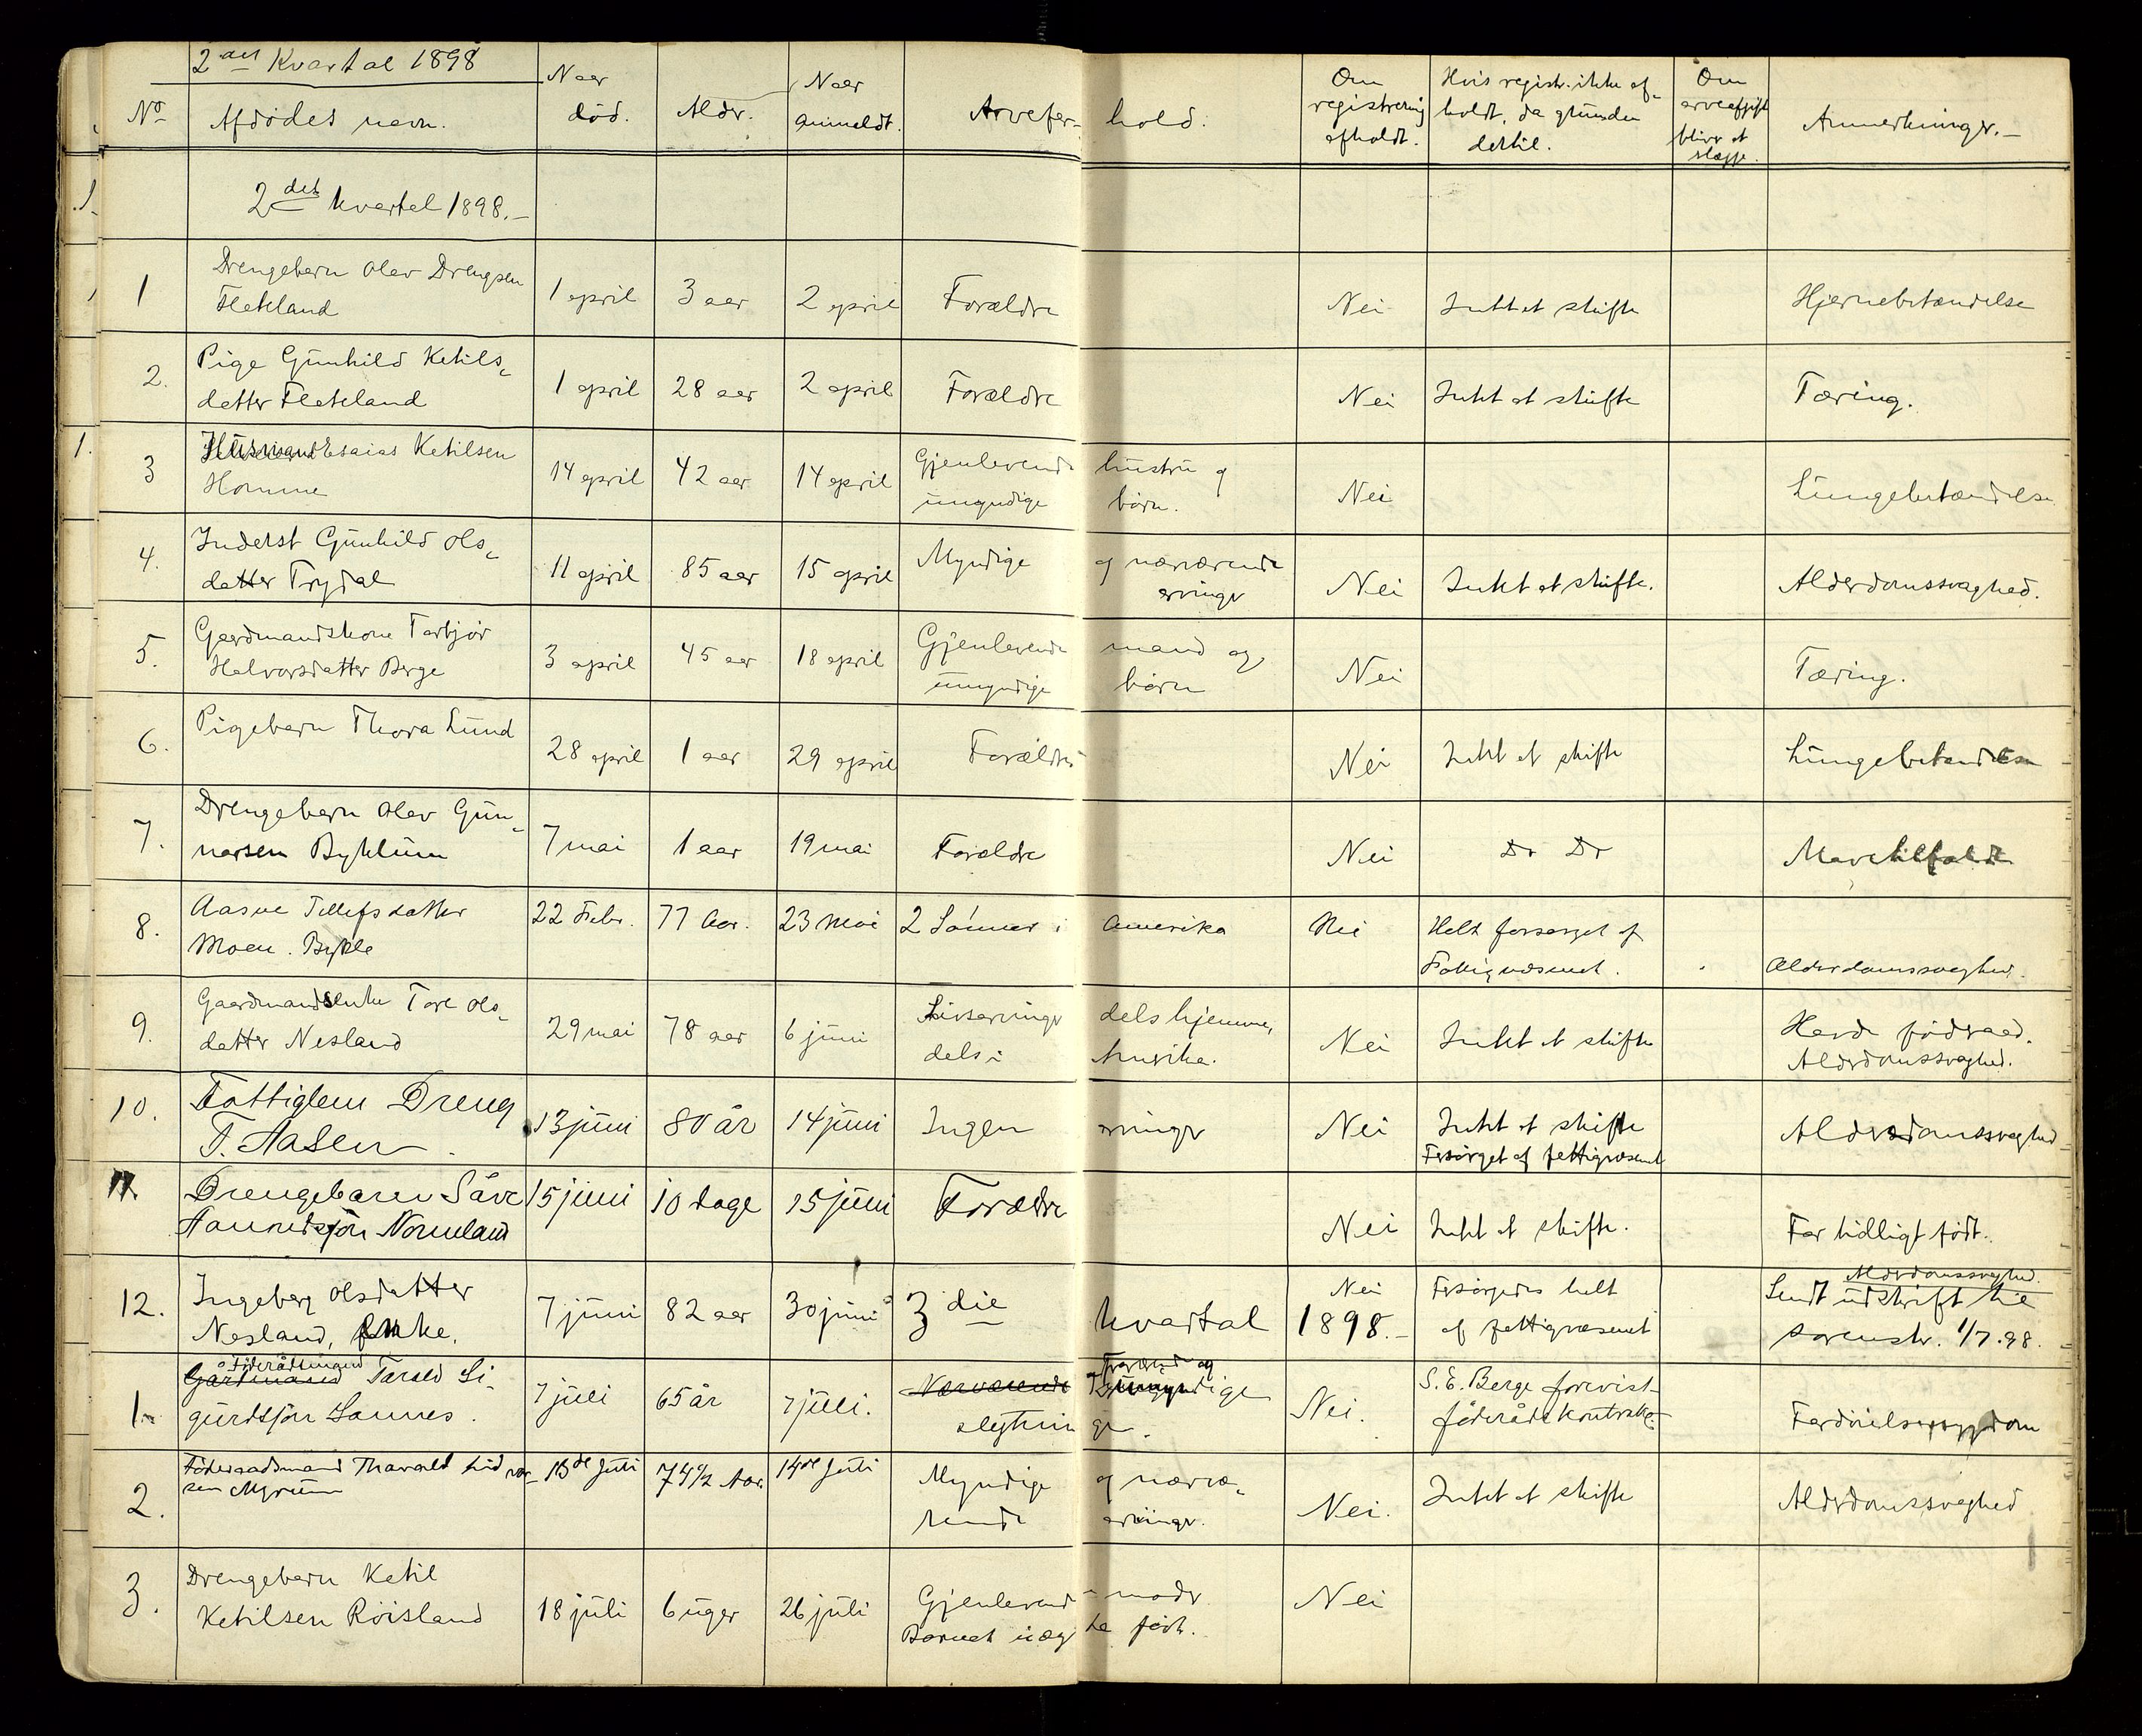 2det Kvartal 1898
No Afdödes navn. Naar död. Alder. Naar anmeldt. Arvefor- hold. Om registrering afholdt. Hvis registr. ikke af- holdt, da grunden dertil. Om arveafgift bliver at slægge. Anmerkninger.-
2det kvartal 1898.-
1 Drengebarn Olav Drengsen 1 april 3 aar 2 april Forældre Nei Intet at skifte Hjernebetændelse
Flateland
2. Pige Gunhild Ketils- 1 april 28 aar 2 april Forældre Nei Intet at skifte Tæring.
datter Flateland
3 Husmand Esaias Ketilsen 14 april 42 aar 14 april Gjenlevende hustru og Nei Lungebetændelse
Homme umyndige börn.
4. Inderst Gunhild Ols- 11 april 85 aar 15 april Myndige og nærværende Nei Intet at skifte. Alderdomssvaghed.
datter Trydal arvinger
5. Gaardmandskone Torbjör 3 april 45 aar 18 april Gjenlevende mand og Nei Tæring.
Halvorsdatter Berge umyndige börn
6. Pigebarn Thora Lund 28 april 1 aar 29 april Forældre Nei Intet at skifte Lungebetændelse
7. Drengebarn Olav Gun- 7 mai 1 aar 19 mai Forældre Nei Do Do Mavetilfælde
narsen Byklum
8. Aasne Tellefsdatter 22 Febr. 77 Aar. 23 Mai 2 Sönner i Amerika Nei Helt forsørget af
Moen. Bykle Fattigvæsenet. Alderdomssvaghed.
9. Gaardmandsenke Tore Ols- 29 mai 78 aar 6 juni Livsarvinger dels hjemme, Nei Intet at skifte Havde föderaad.
datter Nesland dels i Amerika. Alderdomssvaghed.
10. Fattiglem Dreng 13 juni 80 år 14 juni Ingen arvinger Nei Intet at skifte Alderdomssvaghed
T. Aasen. Forsörget af fattigvæsenet
11. Drengebaren Såve 15 juni 10 dage 15 juni Forældre Nei Intet at skifte. For tidligt födt.
Aanundsjön Nomeland
12. Ingeborg Olsdatter 7 juni 82 aar 30 juni Nei Forsörgedes helt Alderdomssvaghed.
Nesland, enke. af fattigvæsenet Sendt udskrift til
3die kvartal 1898.- sorenskr. 1/7.98.
1. Gårdmand Föderådsmand Tarald Si- 7 juli 65 år 7 juli. Nærværende Fravær­end og umyndige Nei. S. E. Berge forevist
gurdsjön Sannes. slegtnin ger. föderådskontrakt. Fordöielsessygdom
2. Föderaadsmand Tharald Lidvor- 13de Juli 74 1/2 Aar. 14de Juli Myndige og nærvæ- Nei. Intet at skifte Alderdomssvaghed
sen Myrum rende arvinger.
3. Drengebarn Ketil 18 juli 6 uger 26 juli Gjenlevende moder Nei
Ketilsen Röisland Barnet uæg te födt.